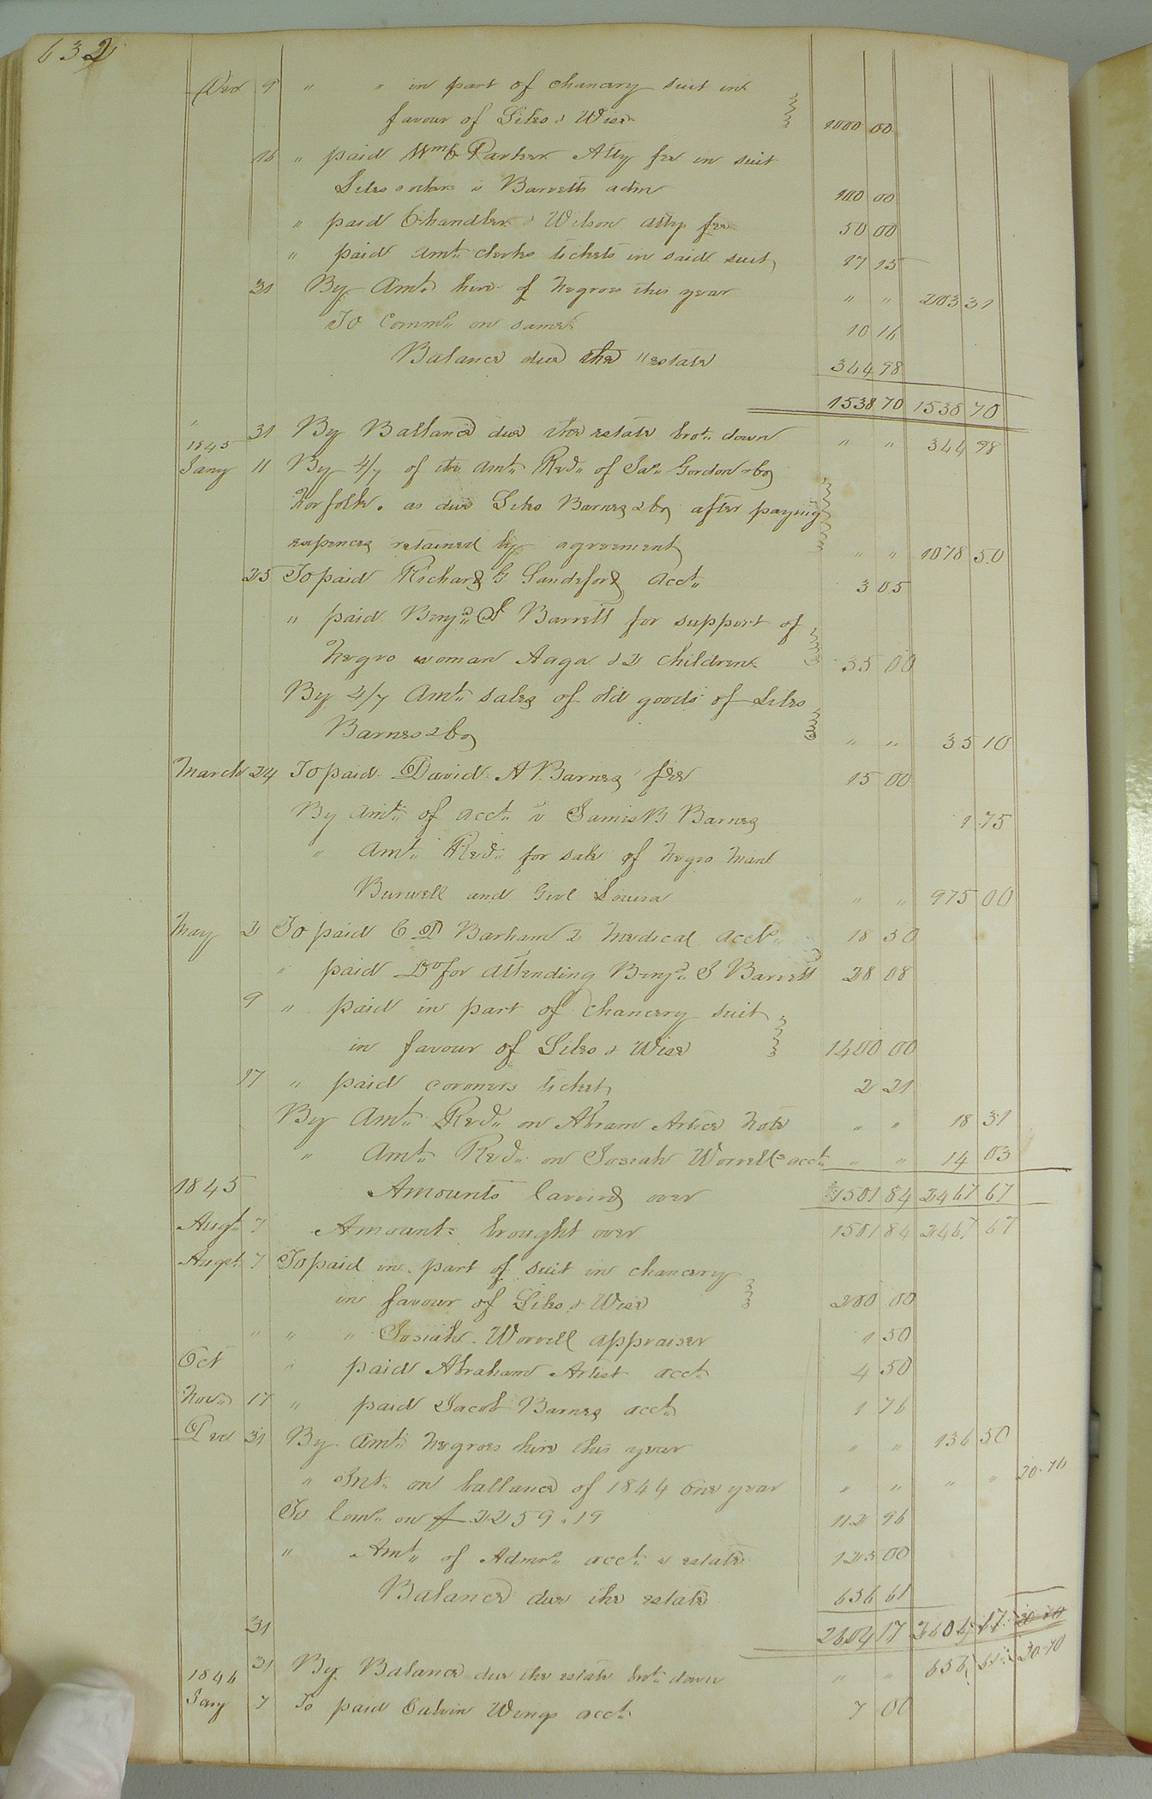 632
Dec 9 " " in part of chancery suit in
favour of Liles & Wise 1000 00
16 " paid Wm C Parker Atty fee in suit
Liles & others v Barretts adm 100 00
" paid Chandler & Wilson atty fee 50 00
" paid amt. clerks tickets in said suit 17 15
31 By Amt. hire of Negroes this year " " 203 31
To Comm. on same 10 16
Balance due the estate 344 98
1538 70 1538 70
" 31 By Ballance due the estate brot. down " " 344 98
1845
Jany 11 By 4/7 of the amt. Recd. of Jas. Gordon & Co
Norfolk. as due Liles Barnes & Co after paying
expences retained by agreement " " 1078 50
25 To paid Richard G Sandeford acct. 3 05
" paid Benja. S Barrett for support of
Negro woman Aaga & 2 children 35 00
By 4/7 Amt. sales of old goods of Liles
Barnes & Co " " 35 10
March 24 To paid David A Barnes fee 15 00
By amt. of acct. v James B Barnes 1 75
" Amt. Recd. for sale of Negro Man
Burwell and Girl Louisa " " 975 00
May 2 To paid C D Barham 2 Medical accts. 18 50
" paid Do for attending Benja. S Barrett 28 08
9 " paid in part of Chancery suit
in favour of Liles & Wise 1400 00
17 " paid coroners ticket 2 21
By Amt. Recd. on Abram Artice Note " " 18 31
" Amt. Recd. on Josiah Worrells acct. " " 14 03
1845 Amounts carried over 1501 84 2467 67
Augt. 7 Amounts brought over 1501 84 2467 67
Augt. 7 To paid in part of suit in chancery
in favour of Liles & Wise 200 00
" " " Josiah Worrell appraiser 1 50
Oct " paid Abraham Artist acct 4 50
Nov 17 " paid Jacob Barnes acct. 1 76
Dec 31 By Amt. Negroes hire this year " " 136 50
" Int. on ballance of 1844 one year " " " " 20.70
To Com. on $2259.19 112 96
" Amt. of Admrs. acct. v estate 125 00
Balance due the estate 656 61
31 2604 17 2604 17
31 By Balance due the estate brot. down " " 656 61 20.70
1846
Jany 7 To paid Calvin Wings acct. 7 00